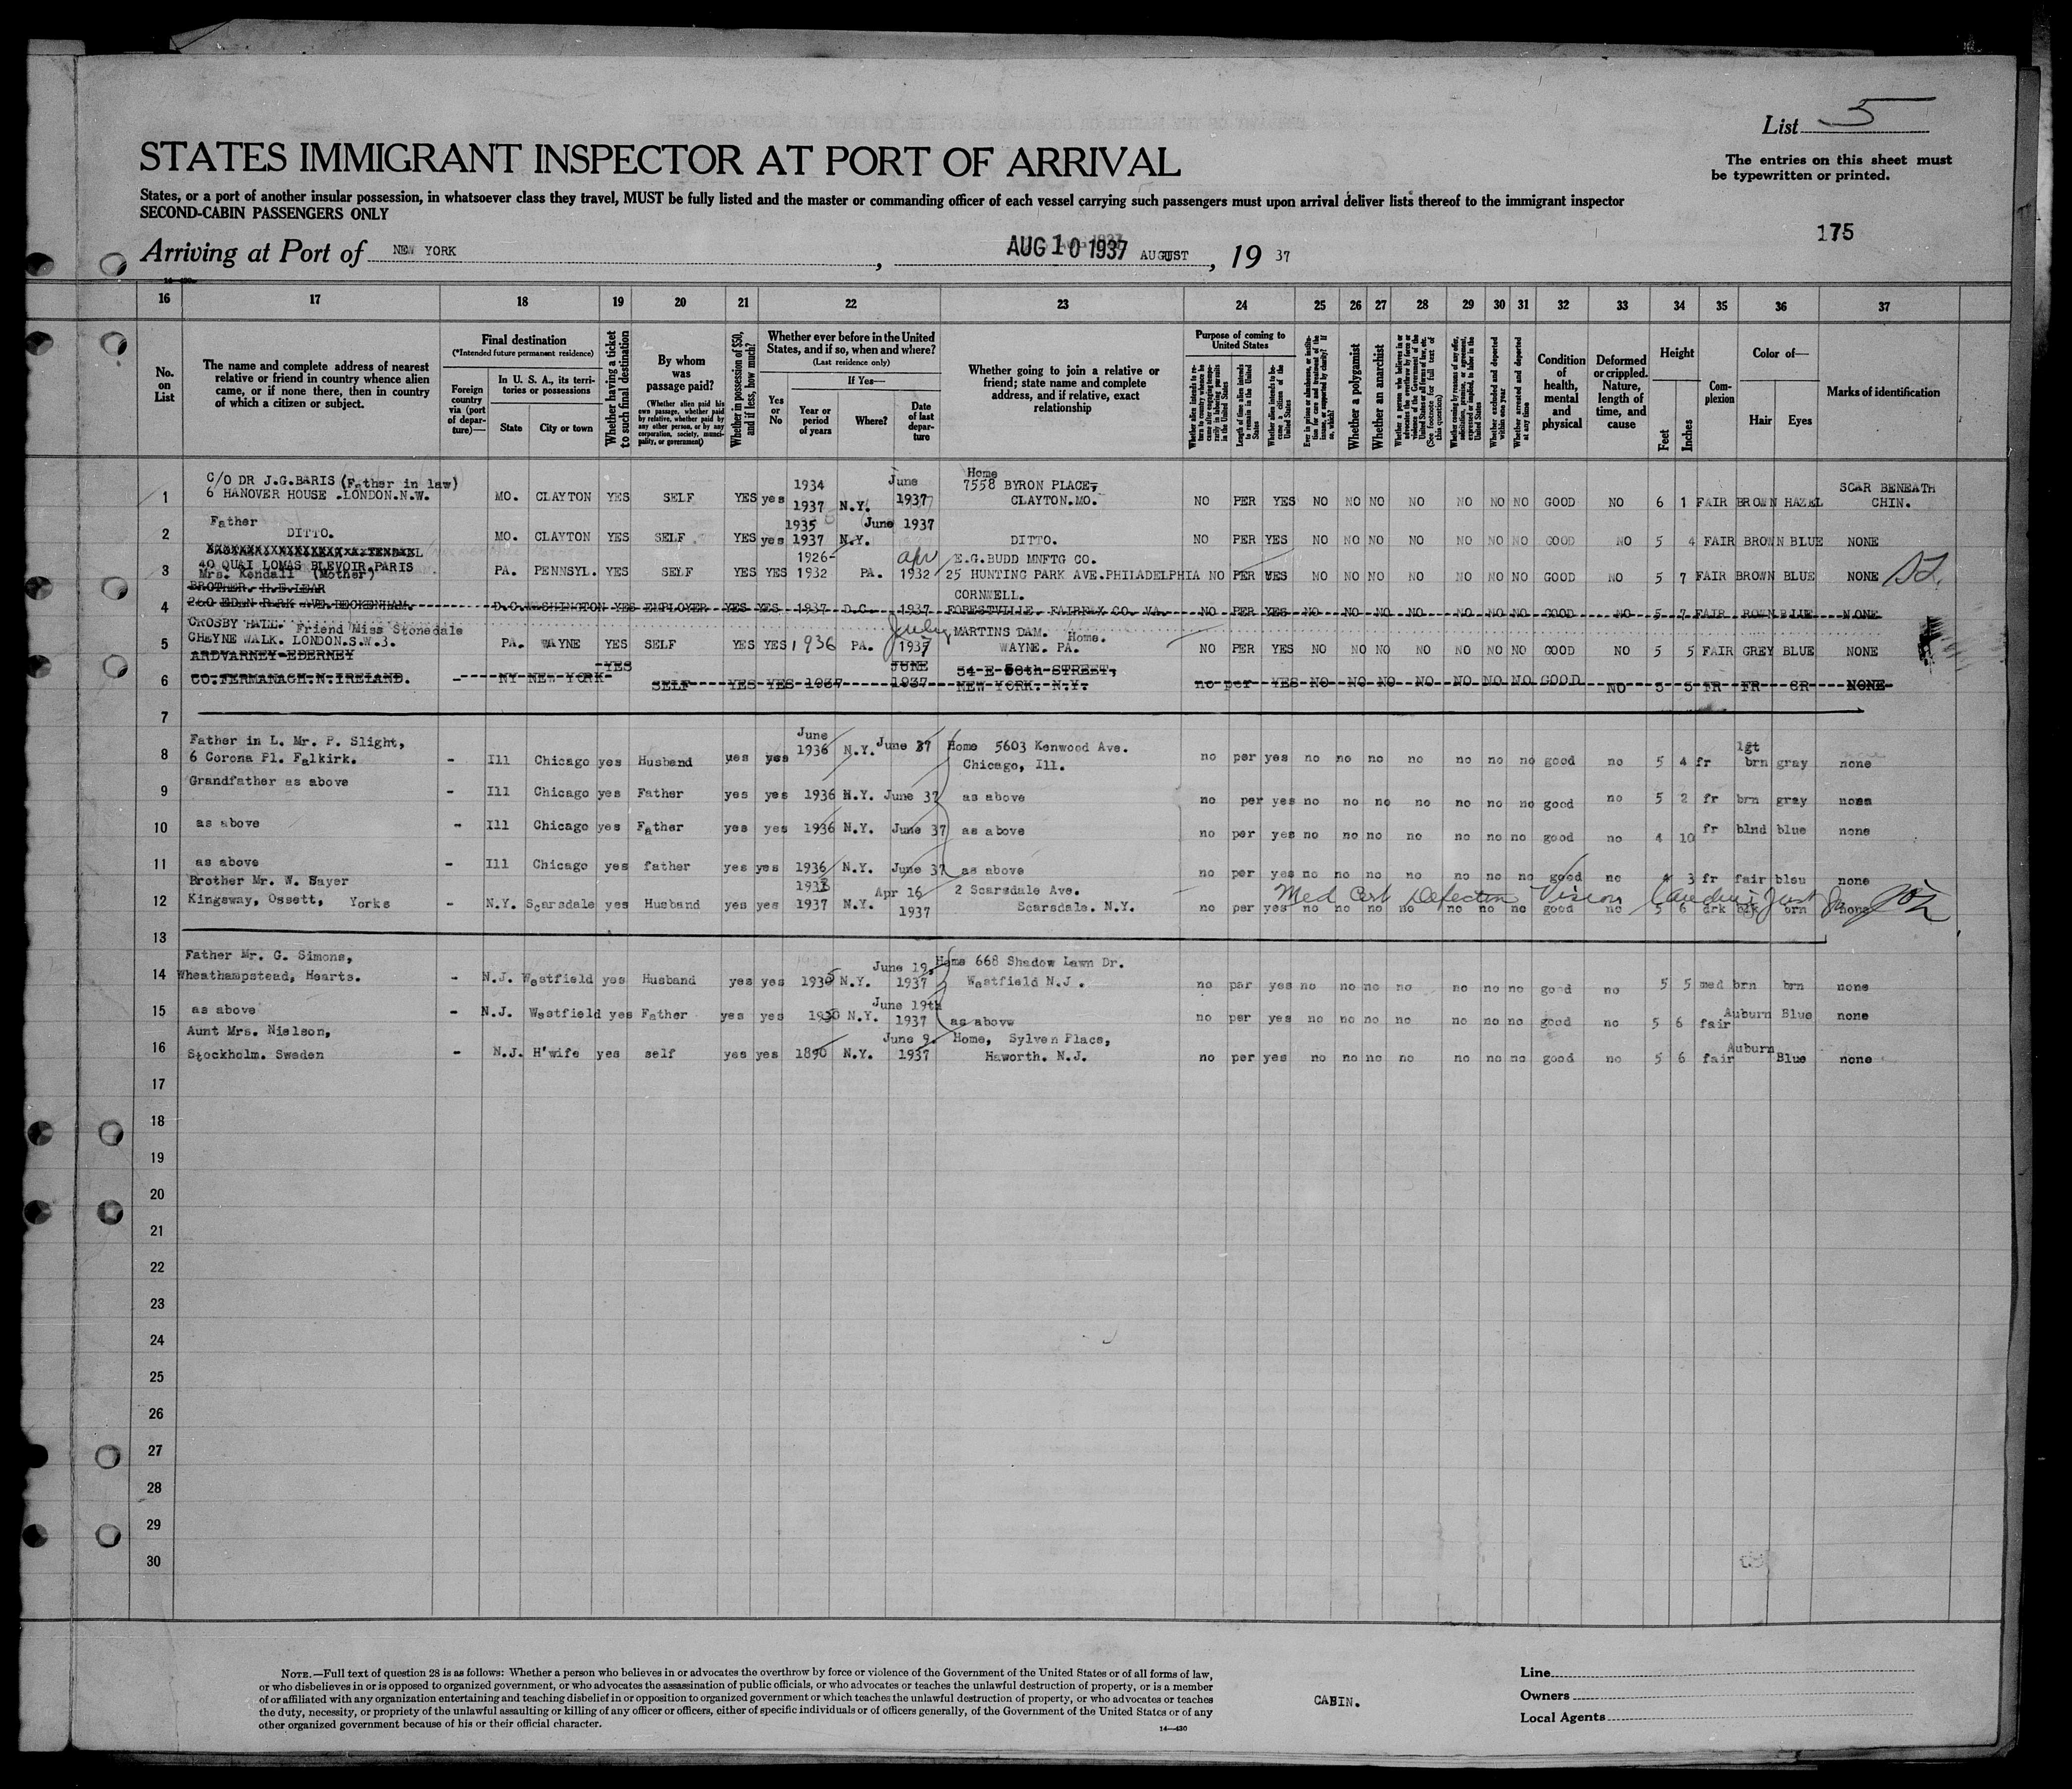 List 5
STATES IMMIGRANT INSPECTOR AT PORT OF ARRIVAL
The entries on this sheet must
be typewritten or printed.
States, or a port of another insular possession, in whatsoever class they travel, MUST be fully listed and the master or commanding officer of each vessel carrying such passengers must upon arrival deliver lists thereof to the immigrant inspector
SECOND-CABIN PASSENGERS ONLY
175
Arriving at Port of NEW YORK, AUG 10 1937 AUGUST, 19 37
16 17 18 19 20 21 22 23 24 25 26 27 28 29 30 31 32 33 34 35 36 37
No. on List
The name and complete address of nearest relative or friend in country whence alien came, or if none there, then in country of which a citizen or subject.
Final destination
(*Intended future permanent residence)
Foreign country via (port of departure)—
In U. S. A., its territories or possessions
State
City or town
Whether having a ticket to such final destination
By whom was passage paid?
(Whether alien paid his own passage, whether paid by relative, whether paid by any other person, or by any corporation, society, municipality, or government)
Whether in possession of $50, and if less, how much?
Whether ever before in the United States, and if so, when and where?
(Last residence only)
Yes or No
If Yes—
Year or period of years
Where?
Date of last departure
Whether going to join a relative or friend; state name and complete address, and if relative, exact relationship
Purpose of coming to United States
Length of time alien intends to remain in the United States
Whether alien intends to become a citizen of the United States
Whether a polygamist
Whether an anarchist
Whether excluded and deported within one year
Whether arrested and deported at any time
Condition of health, mental and physical
Deformed or crippled. Nature, length of time, and cause
Height
Feet
Inches
Complexion
Color of—
Hair
Eyes
Marks of identification
C/O DR J.G.BARIS (Father in law) 1934 June Home
1 6 HANOVER HOUSE .LONDON.N.W. MO. CLAYTON YES SELF YES yes 1937 N.Y. 1937 7558 BYRON PLACE, CLAYTON.MO. NO PER YES NO NO NO NO NO NO NO GOOD NO 6 1 FAIR BROWN HAZEL SCAR BENEATH CHIN.
Father 1935 June 1937
2 DITTO. MO. CLAYTON YES SELF YES yes 1937 N.Y. DITTO. NO PER YES NO NO NO NO NO NO NO GOOD NO 5 4 FAIR BROWN BLUE NONE
40 QUAI LOMAS BLEVOIR.PARIS 1926- apr E.G.BUDD MNFTG CO.
3 Mrs. Kendall (Mother) PA. PENNSYL. YES SELF YES YES 1932 PA. 1932 25 HUNTING PARK AVE.PHILADELPHIA NO PER YES NO NO NO NO NO NO NO GOOD NO 5 7 FAIR BROWN BLUE NONE
BROTHER. H.E.LEAR CORNWELL.
4 260 EDEN PARK AVE.BECKENHAM. D.C. WASHINGTON YES EMPLOYER YES YES 1937 D.C. 1937 FORESTVILLE. FAIRFAX CO. VA. NO PER YES NO NO NO NO NO NO NO GOOD NO 5 7 FAIR BROWN BLUE NONE
CROSBY HALL. Friend Miss Stonedale July MARTINS DAM. Home.
5 CHEYNE WALK. LONDON.S.W.3. PA. WAYNE YES SELF YES YES 1936 PA. 1937 WAYNE. PA. NO PER YES NO NO NO NO NO NO NO GOOD NO 5 5 FAIR GREY BLUE NONE
ARDVARNEY-EDERNEY YES JUNE 54-E-50th-STREET,
6 CO.FERMANAGH.N.IRELAND. - NY NEW YORK SELF YES YES 1937 1937 NEW YORK. N.Y. no per YES NO NO NO NO NO NO NO GOOD NO 5 5 FR FR GR NONE
7
Father in L. Mr. P. Slight, June lgt
8 6 Corona Pl. Falkirk. - Ill Chicago yes Husband yes yes 1936 N.Y. June 37 Home 5603 Kenwood Ave. Chicago, Ill. no per yes no no no no no no no good no 5 4 fr brn gray none
9 Grandfather as above - Ill Chicago yes Father yes yes 1936 N.Y. June 37 as above no per yes no no no no no no no good no 5 2 fr brn gray none
10 as above - Ill Chicago yes Father yes yes 1936 N.Y. June 37 as above no per yes no no no no no no no good no 4 10 fr blnd blue none
11 as above - Ill Chicago yes father yes yes 1936 N.Y. June 37 as above no per yes no no no no no no no good no 4 3 fr fair bleu none
Brother Mr. W. Sayer Apr 16 2 Scarsdale Ave. Med Cert Defective Vision
12 Kingsway, Ossett, Yorks - N.Y. Scarsdale yes Husband yes yes 1937 N.Y. 1937 Scarsdale. N.Y. no per yes no no no no no no no good no 5 6 drk blk brn none
13
Father Mr. G. Simons, June 19, Home 668 Shadow Lawn Dr.
14 Wheathampstead, Hearts. - N.J. Westfield yes Husband yes yes 1930 N.Y. 1937 Westfield N.J. no par yes no no no no no no no good no 5 5 med brn brn none
15 as above - N.J. Westfield yes Father yes yes 1930 N.Y. June 19th 1937 as abovw no per yes no no no no no no no good no 5 6 fair Auburn Blue none
Aunt Mrs. Nielson, June 9. Home, Sylven Place,
16 Stockholm. Sweden - N.J. H'wife yes self yes yes 1890 N.Y. 1937 Haworth. N.J. no per yes no no no no no no no good no 5 6 fair Auburn Blue none
17
18
19
20
21
22
23
24
25
26
27
28
29
30
NOTE.—Full text of question 28 is as follows: Whether a person who believes in or advocates the overthrow by force or violence of the Government of the United States or of all forms of law,
or who disbelieves in or is opposed to organized government, or who advocates the assassination of public officials, or who advocates or teaches the unlawful destruction of property, or is a member
of or affiliated with any organization entertaining and teaching disbelief in or opposition to organized government or which teaches the unlawful destruction of property, or who advocates or teaches
the duty, necessity, or propriety of the unlawful assaulting or killing of any officer or officers, either of specific individuals or of officers generally, of the Government of the United States or of any
other organized government because of his or their official character.
14—430
CABIN.
Line
Owners
Local Agents